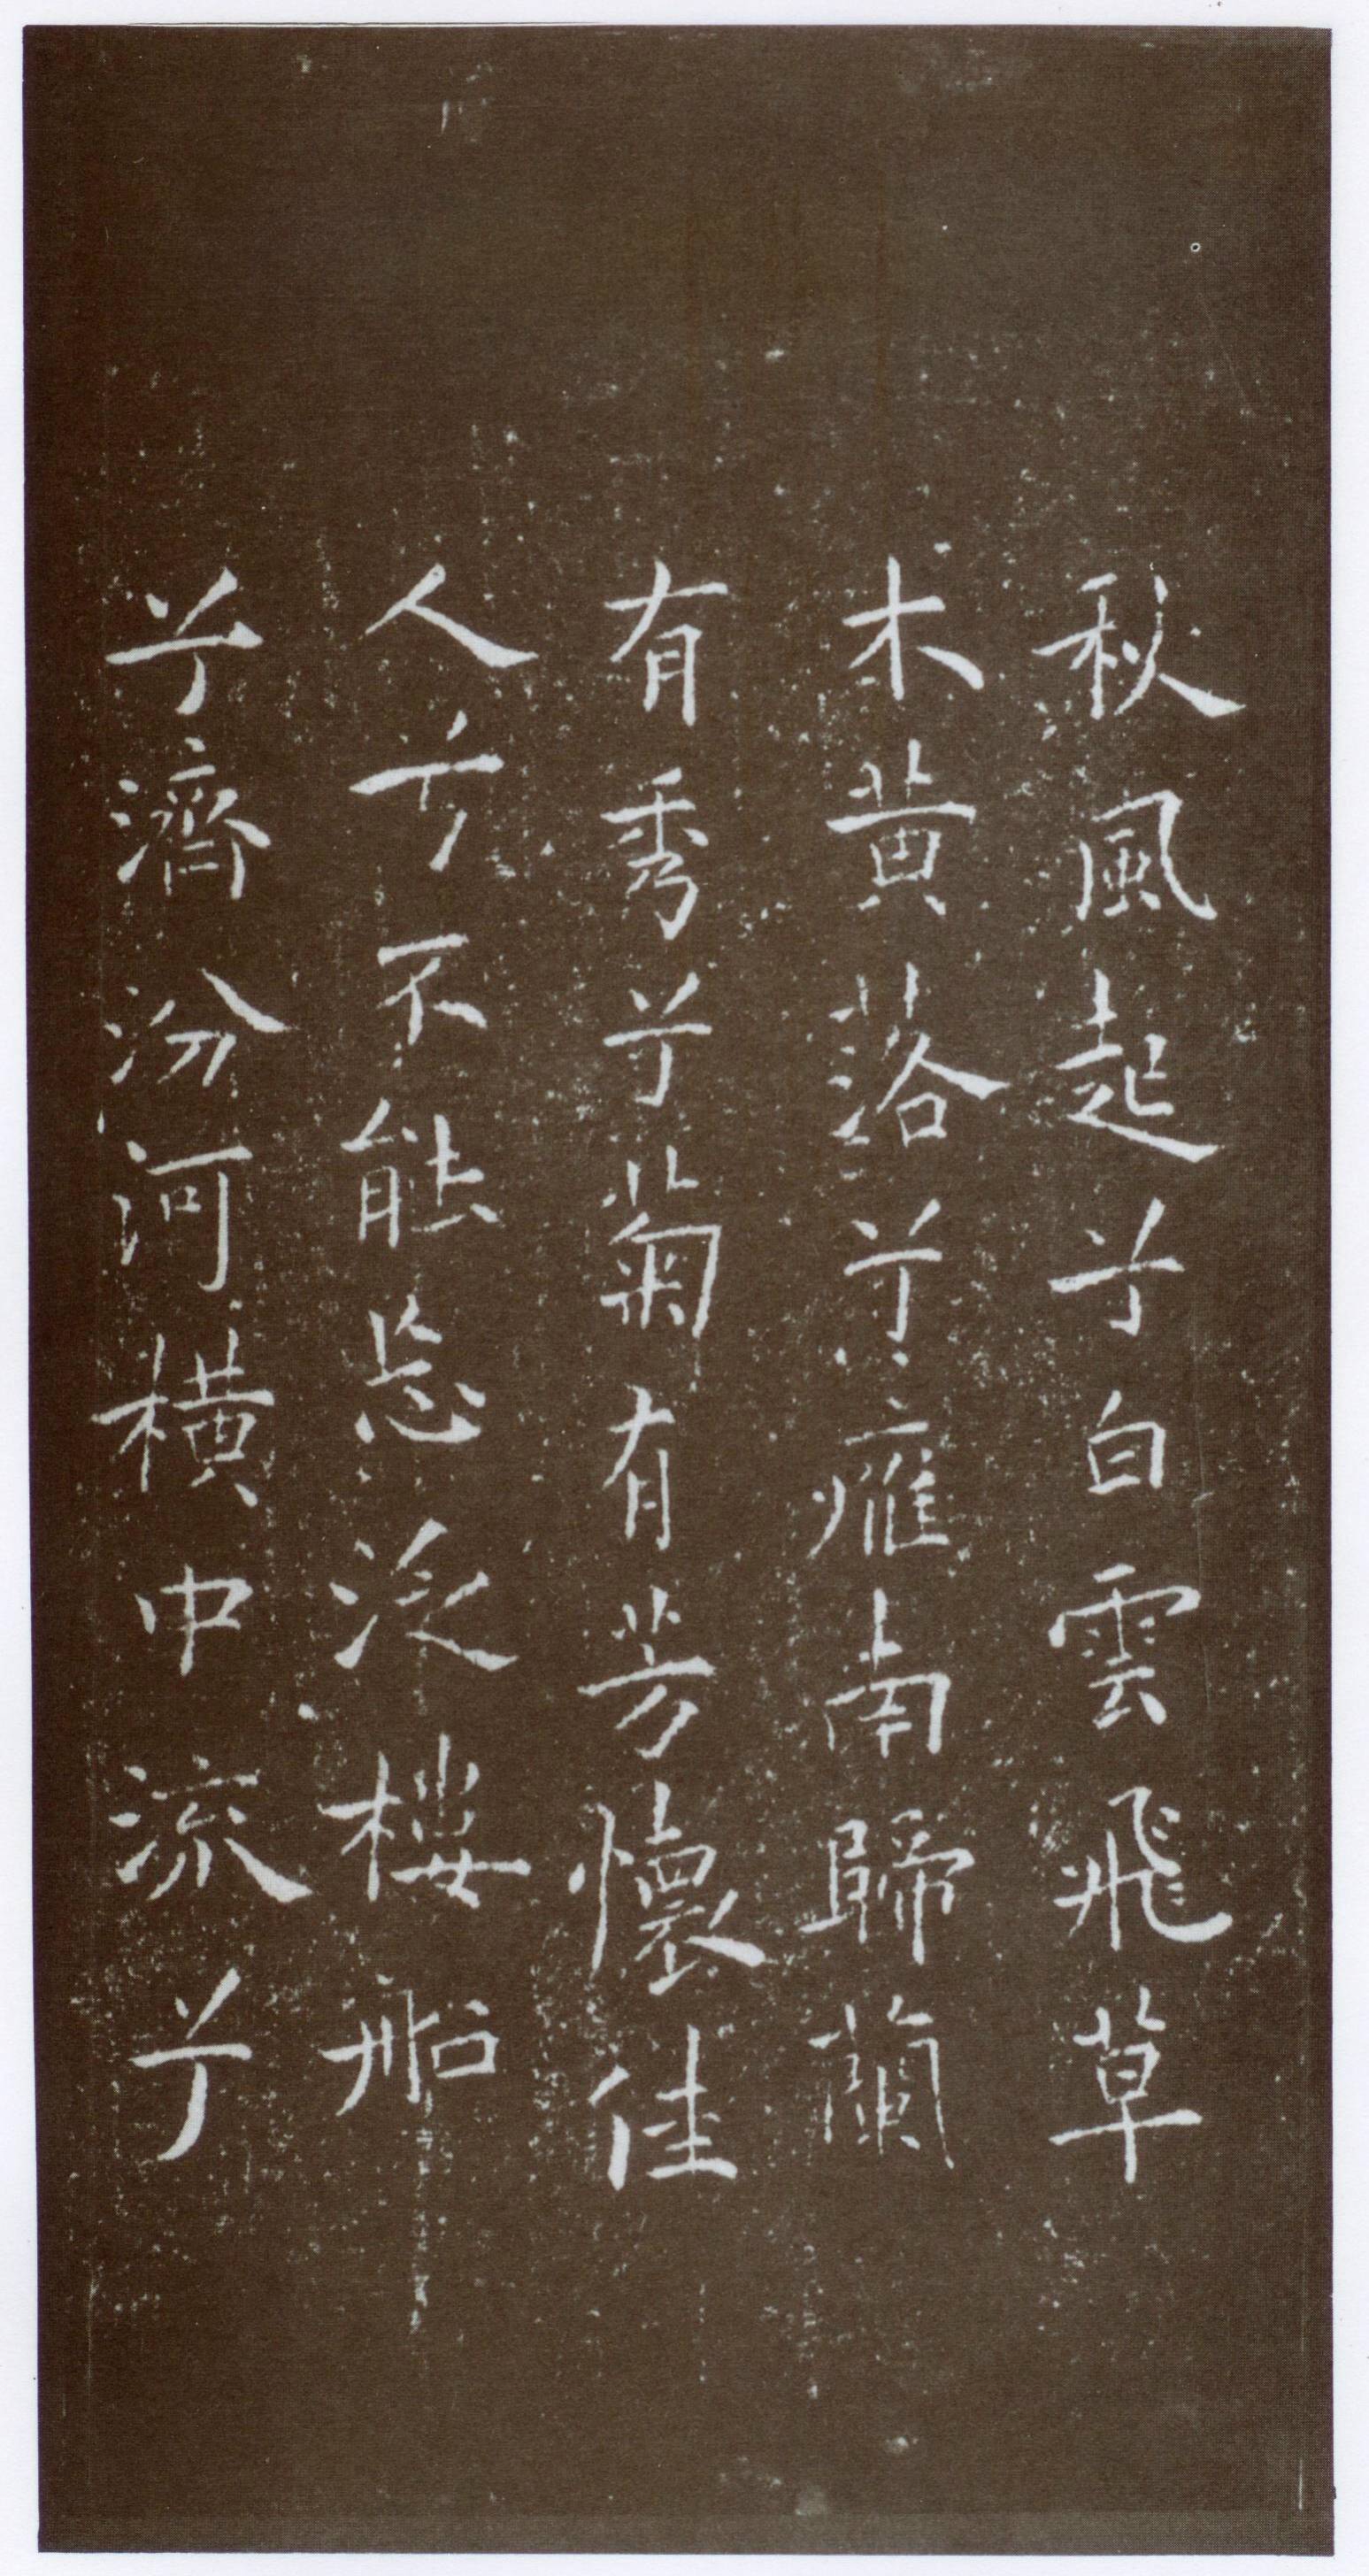 秋風起兮白雲飛草
木黄落兮雁南歸蘭
有秀兮菊有芳懷佳
人兮不能忘泛樓船
兮濟汾河橫中流兮